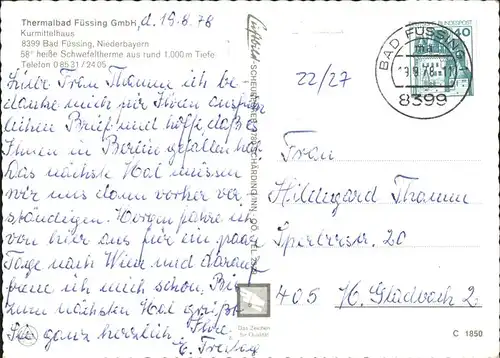 Thermalbad Füssing GmbH, d. 19.8.78
Kurmittelhaus
8399 Bad Füssing, Niederbayern
58° heiße Schwefeltherme aus rund 1.000 m Tiefe
Telefon 08531/2405
Liebe Frau Thamm ich be
danke mich für Ihren ausführ
lichen Brief und hoffe, daß es
Ihnen in Berlin gefallen hat.
Das nächste Mal müssen
wir uns dann vorher ver
ständigen. Morgen fahre ich
von hier aus für ein paar
Tage nach Wien und darauf
freue ich mich schon. Bis
zum nächsten Mal grüßt
Sie ganz herzlich Ihre
E. Freitag
Das Zeichen
für Qualität
22/27
DEUTSCHE BUNDESPOST
40
BAD FÜSSING
19.8.78
8399
Frau
Hildegard Thamm
Sperberstr. 20
405 M. Gladbach 2
C 1850